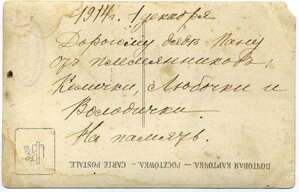 1914 г. 1 декабря
Дорогому дяде Пану
отъ племянниковъ
Колички, Любочки и
Володички.
На память.
ПОЧТОВАЯ КАРТОЧКА. — POCZTÓWKA. — CARTE POSTALE.